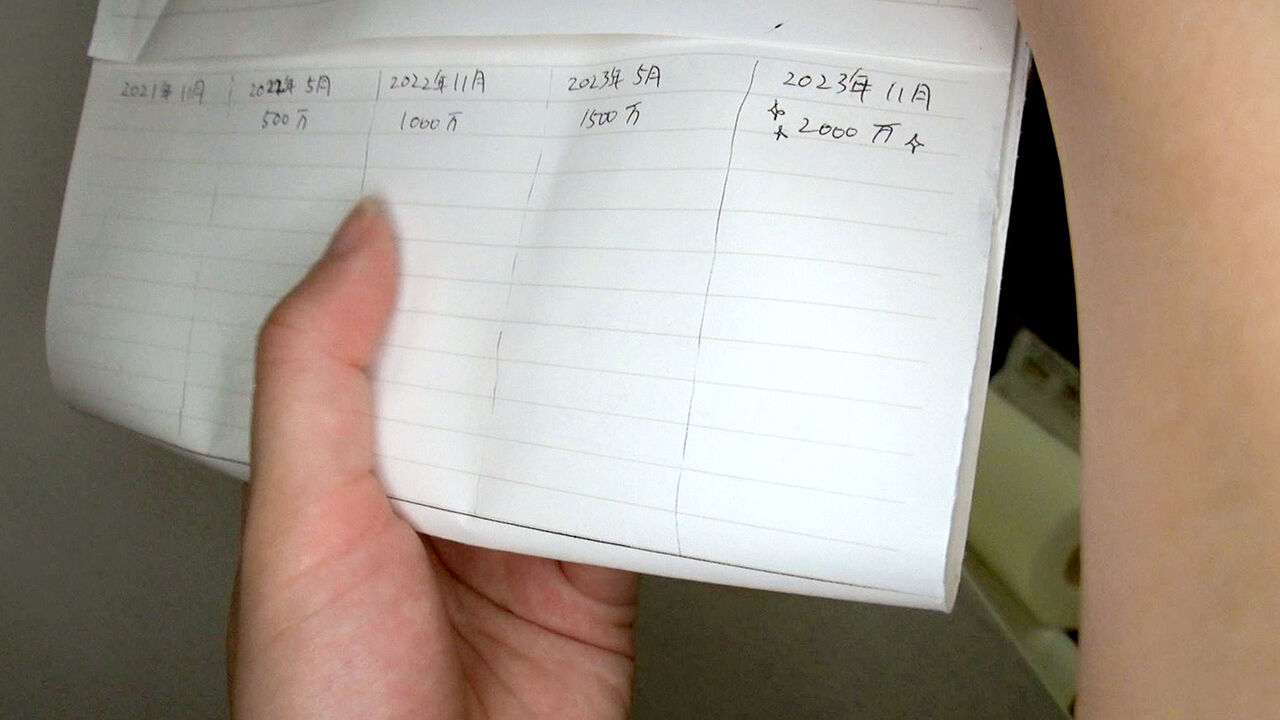 2021年11月 2022年5月 2022年11月 2023年5月 2023年11月
500万 1000万 1500万 2000万